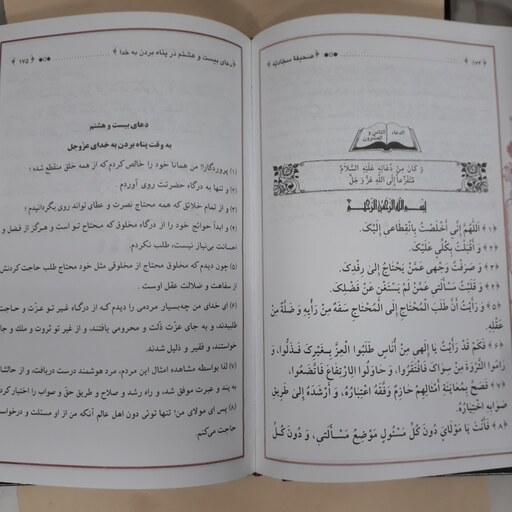 ﴿ ۱۷۴ ﴾ ﴿ صحیفهٔ سجادیّه ﴾
الدعاء الثامن و العشرون
وَ كَانَ مِنْ دُعَائِهِ عَلَيْهِ السَّلَامُ
مُتَفَزِّعاً إِلَى اللَّهِ عَزَّ وَ جَلَّ
بِسْمِ اللَّهِ الرَّحْمَنِ الرَّحِيمِ
﴿۱﴾ اَللَّهُمَّ إِنِّي أَخْلَصْتُ بِانْقِطَاعِي إِلَيْكَ.
﴿۲﴾ وَ أَقْبَلْتُ بِكُلِّي عَلَيْكَ.
﴿۳﴾ وَ صَرَفْتُ وَجْهِي عَمَّنْ يَحْتَاجُ إِلَى رِفْدِكَ.
﴿۴﴾ وَ قَلَبْتُ مَسْأَلَتِي عَمَّنْ لَمْ يَسْتَغْنِ عَنْ فَضْلِكَ.
﴿۵﴾ وَ رَأَيْتُ أَنَّ طَلَبَ الْمُحْتَاجِ إِلَى الْمُحْتَاجِ سَفَهٌ مِنْ رَأْيِهِ وَ ضَلَّةٌ مِنْ
عَقْلِهِ.
﴿۶﴾ فَكَمْ قَدْ رَأَيْتُ يَا إِلَهِي مِنْ أُنَاسٍ طَلَبُوا الْعِزَّ بِغَيْرِكَ فَذَلُّوا، وَ
رَامُوا الثَّرْوَةَ مِنْ سِوَاكَ فَافْتَقَرُوا، وَ حَاوَلُوا الِارْتِفَاعَ فَاتَّضَعُوا،
﴿۷﴾ فَصَحَّ بِمُعَايَنَةِ أَمْثَالِهِمْ حَازِمٌ وَفَّقَهُ اعْتِبَارُهُ، وَ أَرْشَدَهُ إِلَى طَرِيقِ
صَوَابِهِ اخْتِيَارُهُ.
﴿۸﴾ فَأَنْتَ يَا مَوْلَايَ دُونَ كُلِّ مَسْئُولٍ مَوْضِعُ مَسْأَلَتِي، وَ دُونَ كُلِّ
﴿ دعای بیست و هشتم در پناه بردن به خدا ﴾ ﴿ ۱۷۵ ﴾
دعای بیست و هشتم
به وقت پناه بردن به خدای عزّوجل
(۱) پروردگارا! من همانا خود را خالص کردم که از همه خلق منقطع شده؛
(۲) و تنها به درگاه حضرتت روی آوردم.
(۳) و از تمام خلائق که همه محتاج نصرت و عطای تواند روی بگردانیدم؛
(۴) و ابداً حوائج خود را از درگاه مخلوقی که محتاج تو است و هرگز از فضل و
احسانت بی‌نیاز نیست، طلب نکردم.
(۵) چون دیدم که محتاج از مخلوقی مثل خود محتاج طلب حاجت کردنش
از سفاهت و ضلالت عقل اوست.
(۶) ای خدای من چه‌بسیار مردمی را دیدم که از درگاه غیر تو عزّت و حاجت
طلبیدند، و به جای عزّت ذلّت و محرومی یافتند، و از غیر تو ثروت و ملک و جاه
خواستند، و فقیر و ذلیل شدند.
(۷) لذا بواسطه مشاهده امثال این مردم، مرد هوشمند درست دریافت، و از حالشان
به پند و عبرت موفق شد، و راه رشد و صلاح و طریق حقّ و صواب را اختیار کرد.
(۸) پس ای مولای من! تنها توئی دون اهل عالم آنکه من از او مسئلت و درخواست
حاجت می‌کنم.